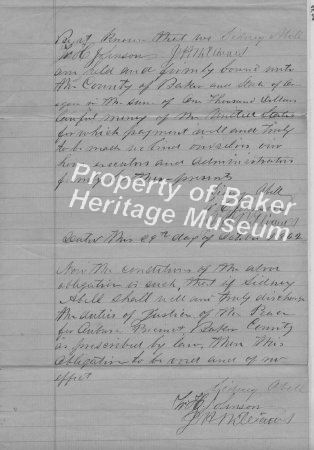 Be it Known that we Sidney Abell
W H Johnson J H Williams
am held and firmly bound unto
the County of Baker and State of Or
egon in the sum of One Thousand Dollars
Lawful money of the United States
for which payment well and truly
to be made we bind ourselves, our
heirs, executors and administrators
firmly by these presents
Sidney Abell
Property of Baker
Heritage Museum
J H Williams
Dated this 29th day of October
Now the conditions of the above
obligation is such, that if Sidney
Abell shall well and truly discharge
the duties of Justice of the Peace
for Auburn Precinct, Baker County
as prescribed by law, then this
obligation to be void and of no
effect
Sidney Abell
W H Johnson
J H Williams